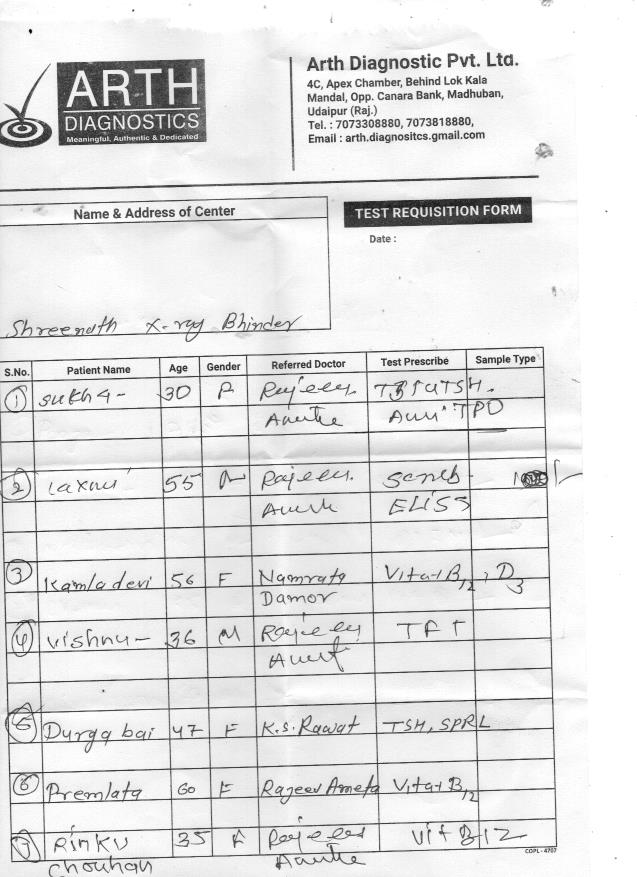 ARTH
DIAGNOSTICS
Meaningful, Authentic & Dedicated
Arth Diagnostic Pvt. Ltd.
4C, Apex Chamber, Behind Lok Kala
Mandal, Opp. Canara Bank, Madhuban,
Udaipur (Raj.)
Tel. : 7073308880, 7073818880,
Email : arth.diagnositcs.gmail.com
Name & Address of Center
TEST REQUISITION FORM
Date :
Shreenath X-ray Bhinder
S.No. Patient Name Age Gender Referred Doctor Test Prescribe Sample Type
1 30
TPO
2 Laxmi 55 Rajeev
ELISS
3 Kamla devi 56 F Namrata Vita-B12, D3
Damor
4 Vishnu - 36 M Rajeev TFT
5 Durga bai 47 F K.S. Rawat TSH, SPRL
6 Premlata 60 F Rajeev Ameta Vita-B12
7 Rinku 35 F Rajeev Vit B12
Chouhan
COPL - 4707